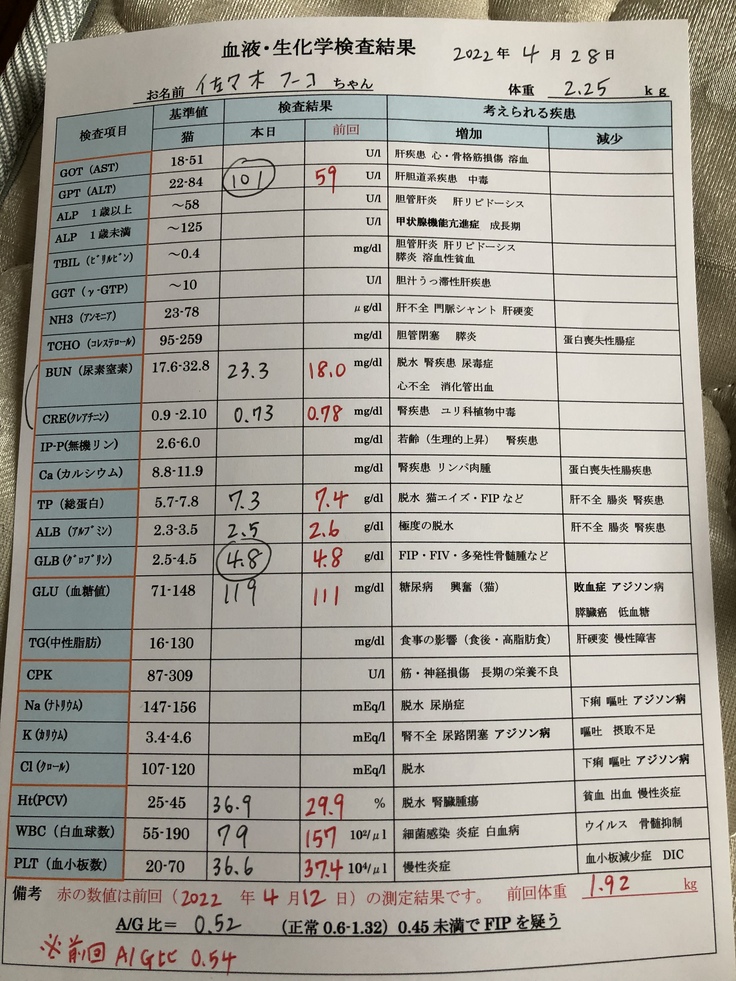 血液・生化学検査結果 2022年 4 月 28日
お名前 佐々木 フーコ ちゃん 体重 2.25 kg
検査項目 基準値 検査結果 考えられる疾患
猫 本日 前回 増加 減少
GOT (AST) 18-51 U/l 肝疾患 心・骨格筋損傷 溶血
GPT (ALT) 22-84 101 59 U/l 肝胆道系疾患 中毒
ALP 1歳以上 ～58 U/l 胆管肝炎 肝リピドーシス
ALP 1歳未満 ～125 U/l 甲状腺機能亢進症 成長期
TBIL (ビリルビン) ～0.4 mg/dl 胆管肝炎 肝リピドーシス
膵炎 溶血性貧血
GGT (γ-GTP) ～10 U/l 胆汁うっ滞性肝疾患
NH3 (アンモニア) 23-78 μg/dl 肝不全 門脈シャント 肝硬変
TCHO (コレステロール) 95-259 mg/dl 胆管閉塞 膵炎 蛋白喪失性腸症
BUN (尿素窒素) 17.6-32.8 23.3 18.0 mg/dl 脱水 腎疾患 尿毒症
心不全 消化管出血
CRE(クレアチニン) 0.9 -2.10 0.73 0.78 mg/dl 腎疾患 ユリ科植物中毒
IP-P(無機リン) 2.6-6.0 mg/dl 若齢（生理的上昇） 腎疾患
Ca (カルシウム) 8.8-11.9 mg/dl 腎疾患 リンパ肉腫 蛋白喪失性腸疾患
TP (総蛋白) 5.7-7.8 7.3 7.4 g/dl 脱水 猫エイズ・FIP など 肝不全 腸炎 腎疾患
ALB (アルブミン) 2.3-3.5 2.5 2.6 g/dl 極度の脱水 肝不全 腸炎 腎疾患
GLB (グロブリン) 2.5-4.5 4.8 4.8 g/dl FIP・FIV・多発性骨髄腫など
GLU (血糖値) 71-148 119 111 mg/dl 糖尿病 興奮（猫） 敗血症 アジソン病
膵臓癌 低血糖
TG(中性脂肪) 16-130 mg/dl 食事の影響（食後・高脂肪食） 肝硬変 慢性障害
CPK 87-309 U/l 筋・神経損傷 長期の栄養不良
Na (ナトリウム) 147-156 mEq/l 脱水 尿崩症 下痢 嘔吐 アジソン病
K (カリウム) 3.4-4.6 mEq/l 腎不全 尿路閉塞 アジソン病 嘔吐 摂取不足
Cl (クロール) 107-120 mEq/l 脱水 下痢 嘔吐 アジソン病
Ht(PCV) 25-45 36.9 29.9 % 脱水 腎臓腫瘍 貧血 出血 慢性炎症
WBC (白血球数) 55-190 79 157 10²/μl 細菌感染 炎症 白血病 ウイルス 骨髄抑制
PLT (血小板数) 20-70 36.6 37.4 10⁴/μl 慢性炎症 血小板減少症 DIC
備考 赤の数値は前回（2022 年 4 月 12 日）の測定結果です。 前回体重 1.92 kg
A/G 比＝ 0.52 (正常 0.6-1.32) 0.45 未満で FIP を疑う
※前回 A/G比 0.54